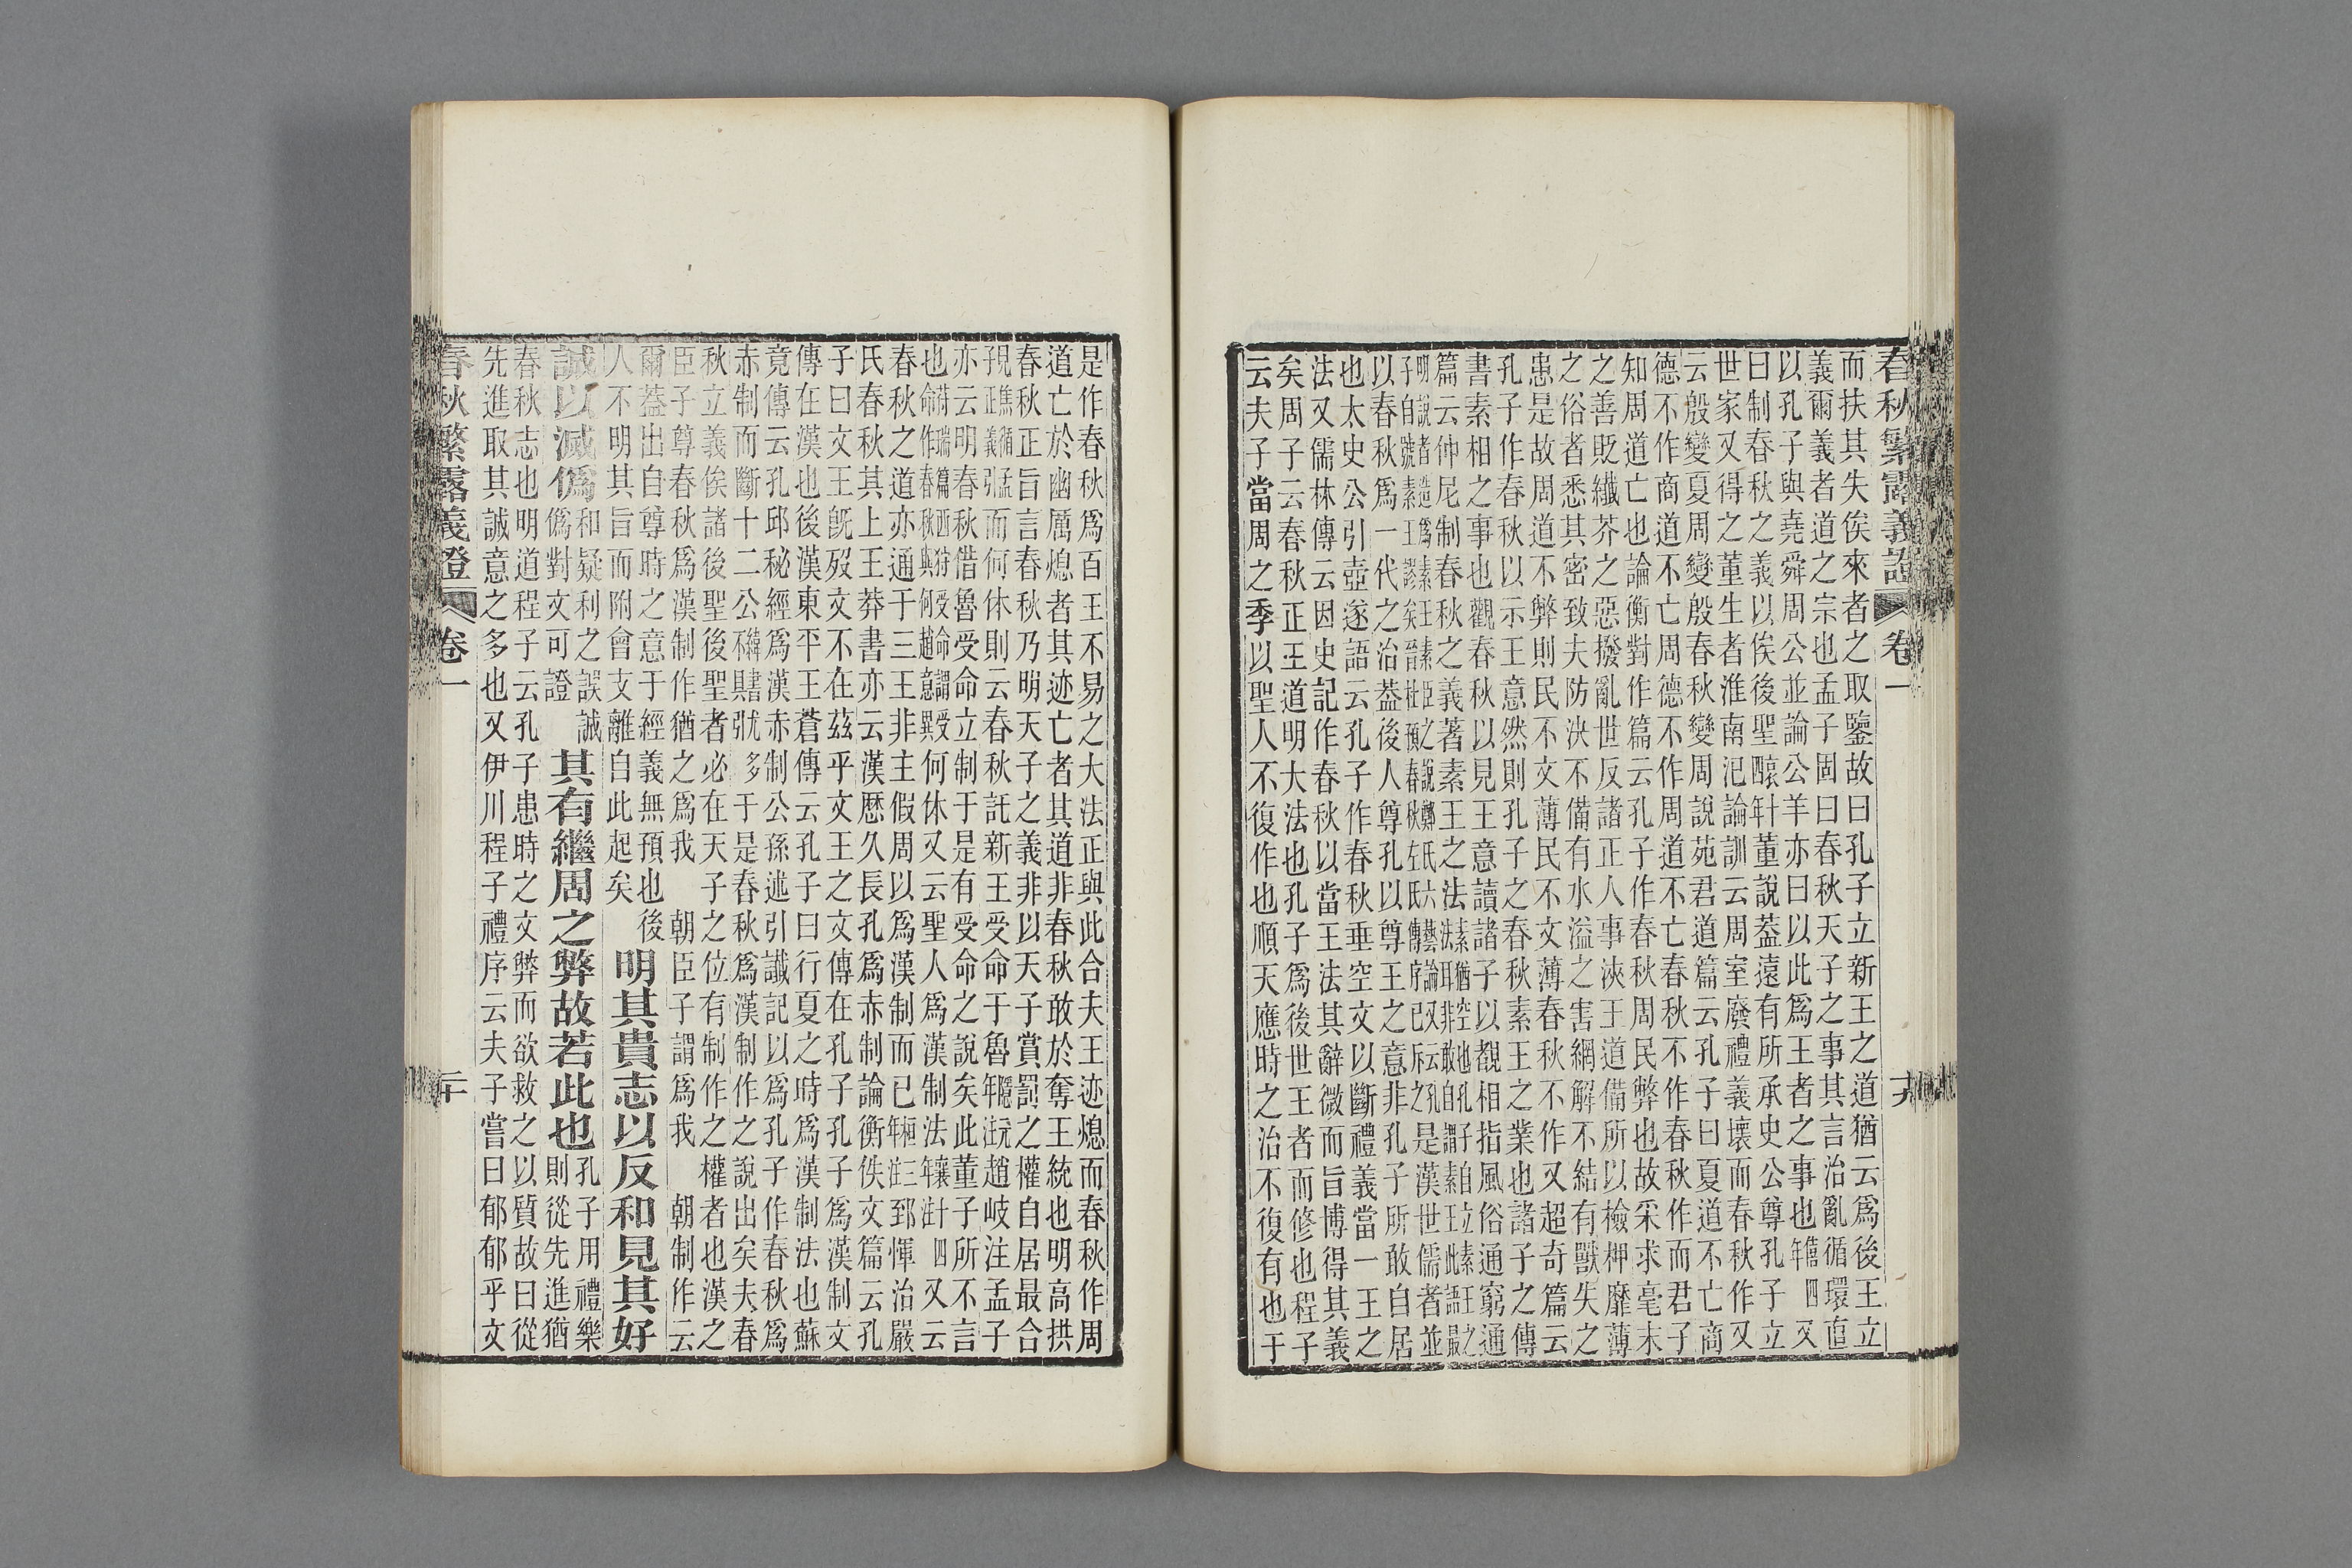 春秋繁露義證 卷一 十九
而扶其失俟來者之取鑒故曰孔子立新王之道猶云爲後王立
義爾義者道之宗也孟子固曰春秋天子之事其言治亂循環直
以孔子與堯舜周公並論公羊亦曰以此爲王者之事也僖四年又
曰制春秋之義以俟後聖哀十四年董說蓋遠有所承史公尊孔子立
世家又得之董生者淮南氾論訓云周室廢禮義壞而春秋作又
云殷變夏周變殷春秋變周說苑君道篇云孔子曰夏道不亡商
德不作商道不亡周德不作周道不亡春秋不作春秋作而君子
知周道亡也論衡對作篇云孔子作春秋周民弊也故采求毫末
之善貶纖芥之惡撥亂世反諸正人事浹王道備所以檢柙靡薄
之俗者悉其密致夫防決不備有水溢之害網解不結有獸失之
患是故周道不弊則民不文薄民不文薄春秋不作又超奇篇云
孔子作春秋以示王意然則孔子之春秋素王之業也諸子之傳
書素相之事也觀春秋以見王意讀諸子以覩相指風俗通窮通
篇云仲尼制春秋之義著素王之法素猶空也孔子自立素王之法耳非敢自謂素王此語最
明說者造爲素王素臣之說鄭氏六藝論又云孔子自號素王謬矣晉杜預春秋左氏傳序已斥之是漢世儒者並
以春秋爲一代之治蓋後人尊孔以尊王之意非孔子所敢自居
也太史公引壺遂語云孔子作春秋垂空文以斷禮義當一王之
法又儒林傳云因史記作春秋以當王法其辭微而旨博得其義
矣周子云春秋正王道明大法也孔子爲後世王者而修也程子
云夫子當周之季以聖人不復作也順天應時之治不復有也于
是作春秋爲百王不易之大法正與此合夫王迹熄而春秋作周
道亡於幽厲熄者其迹亡者其道非春秋敢於奪王統也明高拱
春秋正旨言春秋乃明天子之義非以天子賞罰之權自居最合
見焦循孟子正義引而何休則云春秋託新王受命于魯隱元年注趙岐注孟子
亦云明春秋借魯受命立制于是有受命之說矣此董子所不言
也符瑞篇西狩受命謂受命作春秋與何趙意異何休又云聖人爲漢制法哀十四年注又云
春秋之道亦通于三王非主假周以爲漢制而已桓三年注郅惲治嚴
氏春秋其上王莽書亦云漢歷久長孔爲赤制論衡佚文篇云孔
子曰文王旣歿文不在茲乎文王之文傳在孔子孔子爲漢制文
傳在漢也後漢東平王蒼傳云孔子曰行夏之時爲漢制法也蘇
竟傳云孔邱秘經爲漢赤制公孫述引讖記以爲孔子作春秋爲
赤制而斷十二公緯書尤多不具于是春秋爲漢制作之說出矣夫春
秋立義俟諸後聖後聖者必在天子之位有制作之權者也漢之
臣子尊春秋爲漢制作猶之爲我朝臣子謂爲我朝制作云
爾蓋出自尊時之意于經義無預也後
人不明其旨而附會支離自此起矣明其貴志以反和見其好
誠以滅僞和疑利之誤誠僞對文可證其有繼周之弊故若此也孔子用禮樂則從先進猶
春秋志也明道程子云孔子患時之文弊而欲救之以質故曰從
先進取其誠意之多也又伊川程子禮序云夫子嘗曰郁郁乎文
春秋繁露義證 卷一 二十